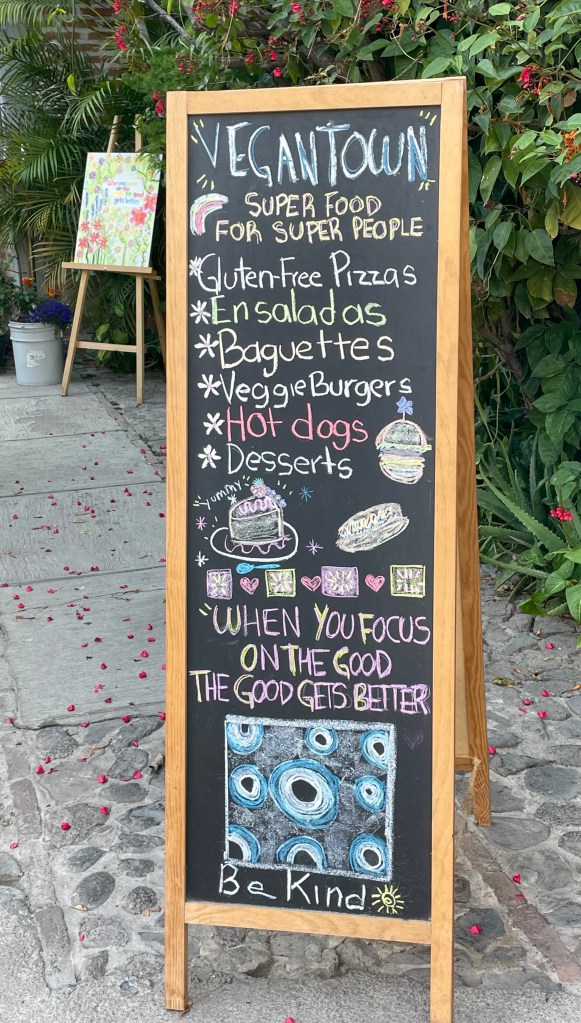 VEGANTOWN
SUPER FOOD
FOR SUPER PEOPLE
Gluten-Free Pizzas
Ensaladas
Baguettes
Veggie Burgers
Hot dogs
Desserts
yummy
"WHEN YOU FOCUS
ON THE GOOD
THE GOOD GETS BETTER
Be Kind